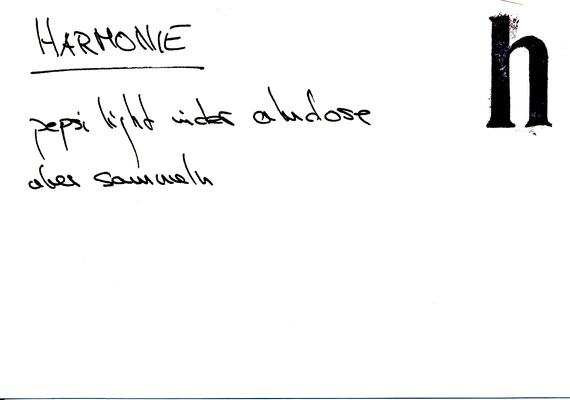 HARMONIE
h
pepsi light in der aludose
aber sammeln